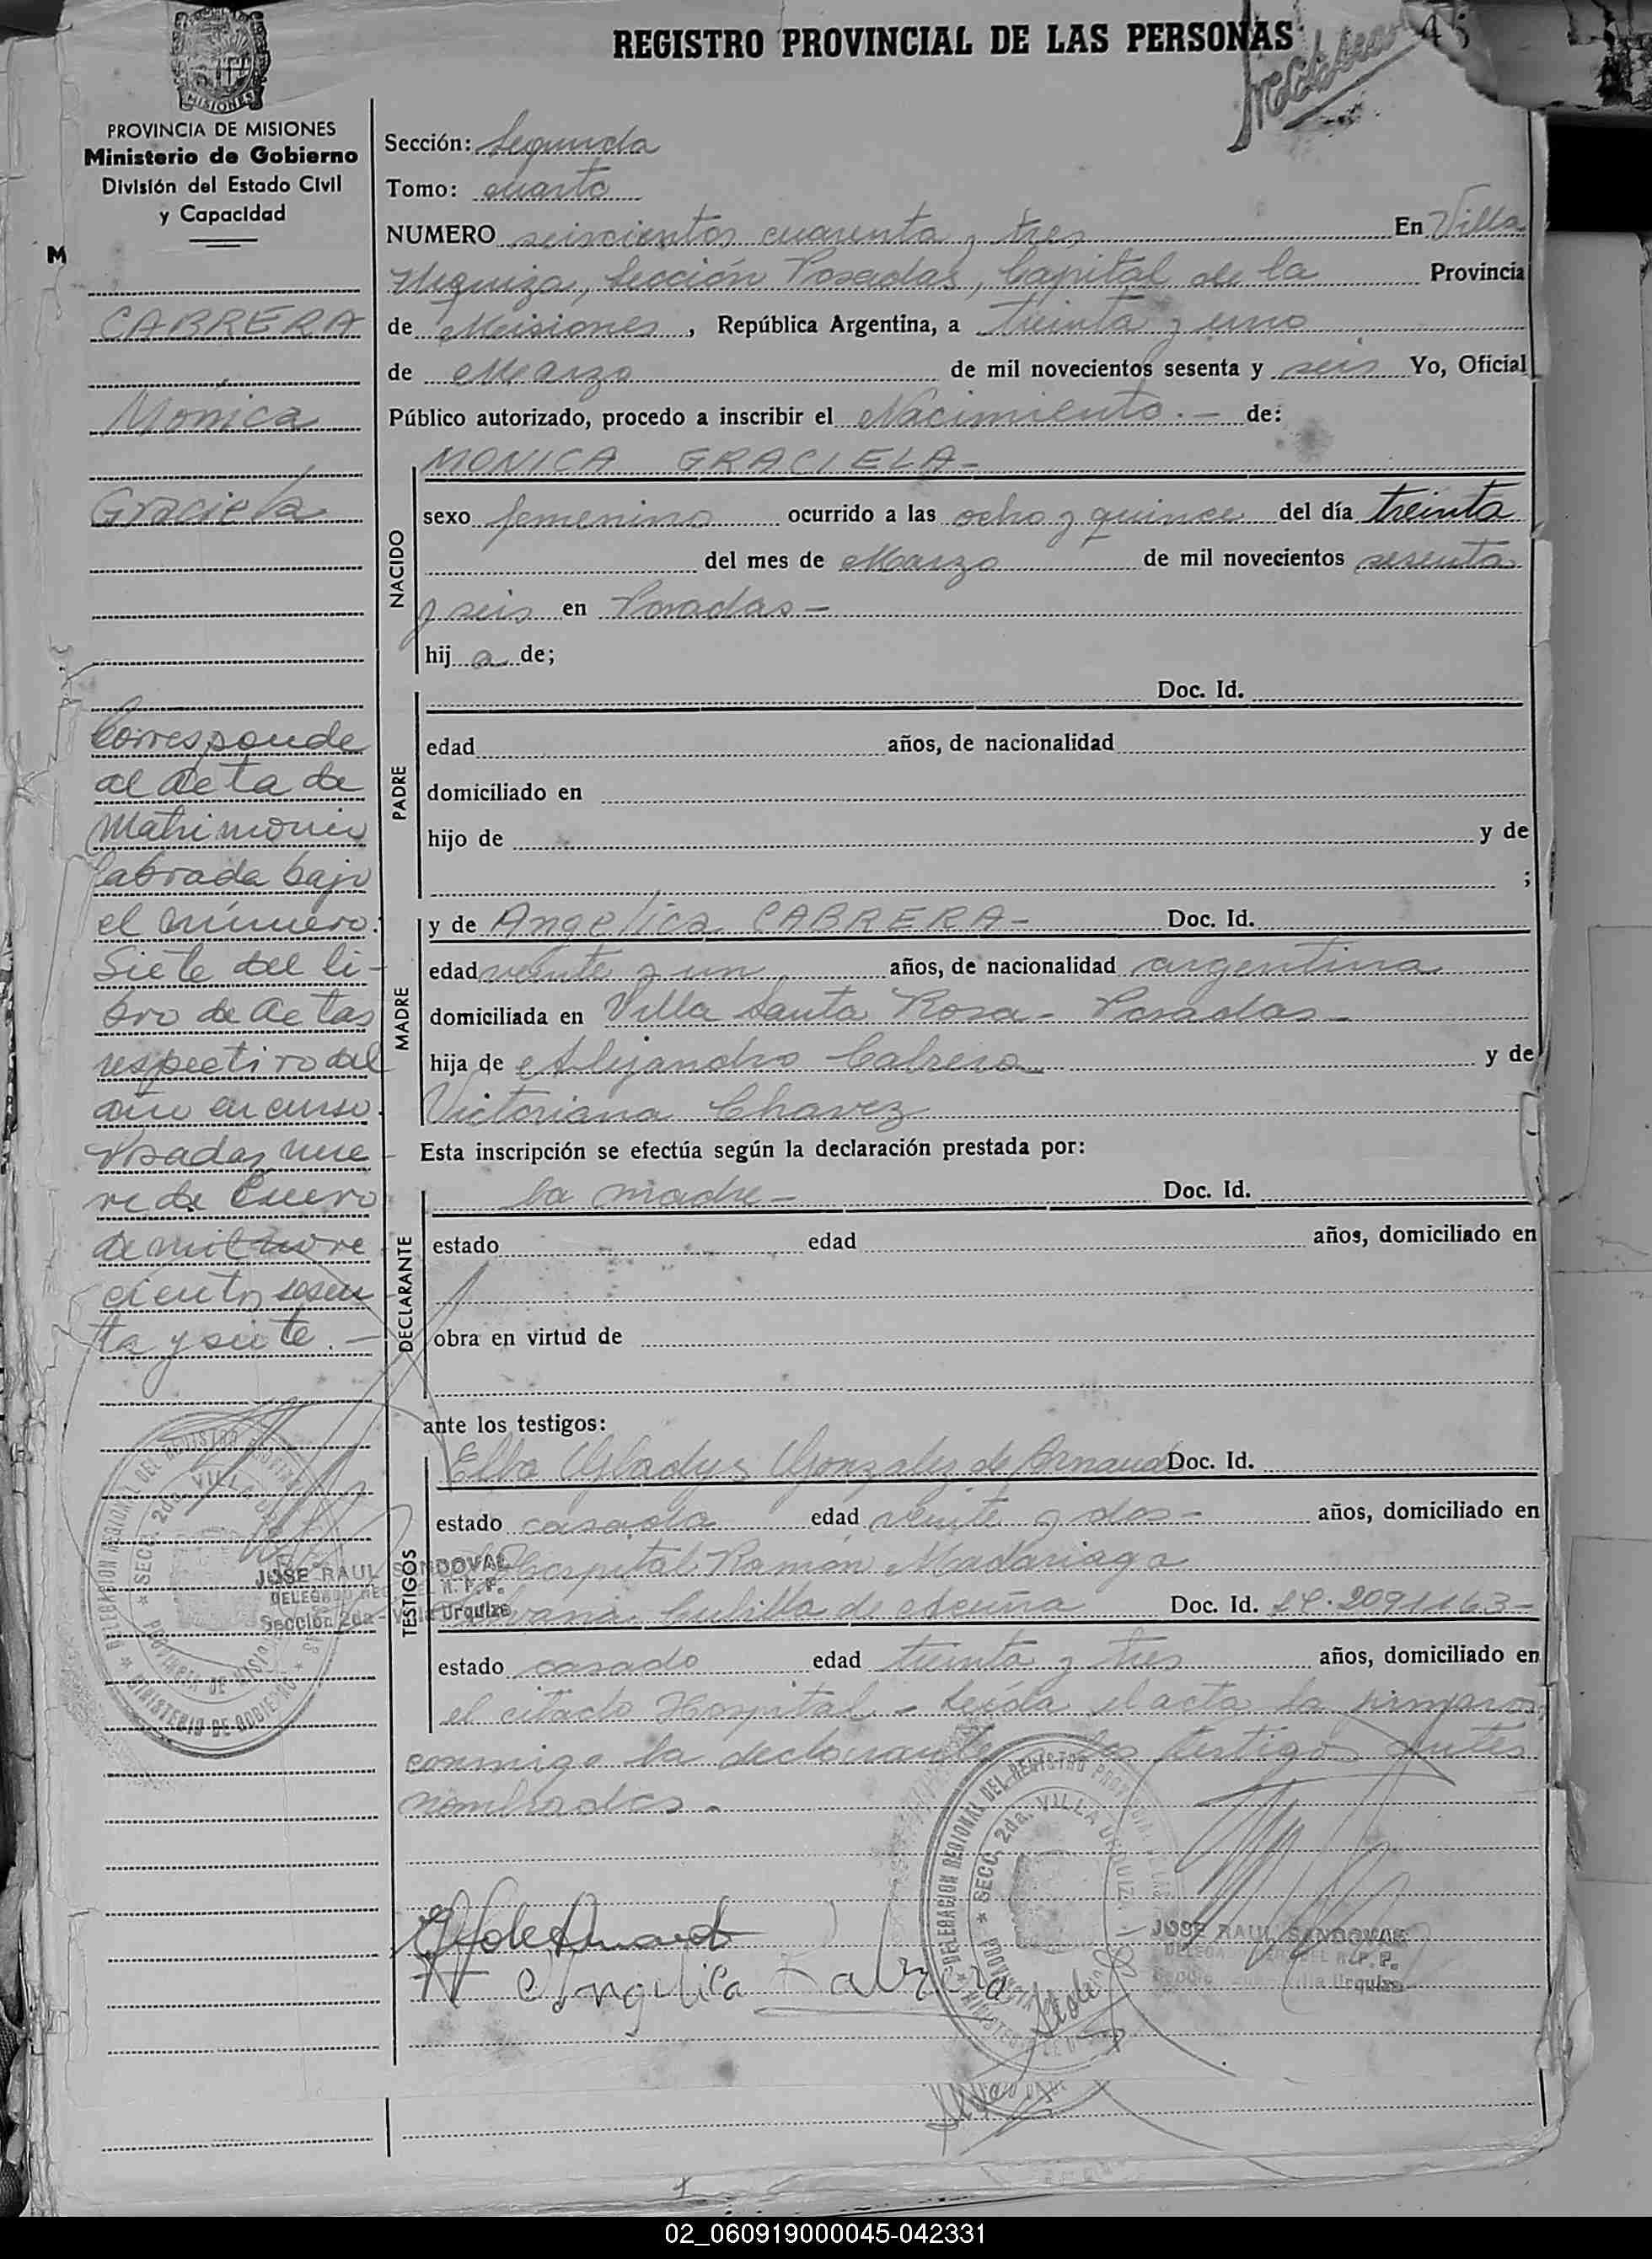 REGISTRO PROVINCIAL DE LAS PERSONAS
45
MISIONES
PROVINCIA DE MISIONES
Ministerio de Gobierno
División del Estado Civil
y Capacidad
M
CABRERA
Mónica
Graciela
Corresponde
al Acta de
Matrimonio
labrada bajo
el número:
Siete del li-
bro de Actas
respectivo del
año en curso.
Posadas, nue-
ve de Enero
de mil nove
cientos sesen-
ta y siete.-
Sección: Segunda
Tomo: cuarto
NUMERO seiscientos cuarenta y tres En Villa
Urquiza, Sección Posadas, Capital de la Provincia
de Misiones, República Argentina, a treinta y uno
de Marzo de mil novecientos sesenta y seis Yo, Oficial
Público autorizado, procedo a inscribir el Nacimiento.- de:
NACIDO
MONICA GRACIELA-
sexo femenino ocurrido a las ocho y quince del día treinta
del mes de Marzo de mil novecientos sesenta
y seis en Posadas-
hij a de;
PADRE
Doc. Id.
edad años, de nacionalidad
domiciliado en
hijo de y de
;
MADRE
y de Angelica CABRERA- Doc. Id.
edad veinte y un años, de nacionalidad argentina
domiciliada en Villa Santa Rosa- Posadas-
hija de Alejandro Cabrera y de
Victoriana Chavez
Esta inscripción se efectúa según la declaración prestada por:
DECLARANTE
la madre- Doc. Id.
estado edad años, domiciliado en
obra en virtud de
ante los testigos:
TESTIGOS
Elba Gladys Gonzalez de Arnaud Doc. Id.
estado casada edad veinte y dos- años, domiciliado en
hospital Ramón Madariaga
Cubilla de Acuña Doc. Id. 2091163-
estado casado edad treinta y tres años, domiciliado en
el citado Hospital- Leída el acta la firmaron
conmigo la declarante y los testigos antes
nombrados.-
DELEGACION REGIONAL DEL REGISTRO PROVINCIAL
* SECC. 2da. VILLA URQUIZA
PROVINCIA DE MISIONES
* MINISTERIO DE GOBIERNO *
JOSE RAUL SANDOVAL
DELEGADO REG. DEL R. P. P.
Sección 2da - Villa Urquiza
DELEGACION REGIONAL DEL REGISTRO PROVINCIAL
* SECC. 2da. VILLA URQUIZA
JOSE RAUL SANDOVAL
DELEGADO REG. DEL R. P. P.
Villa Urquiza
Angelica Cabrera
02_060919000045-042331